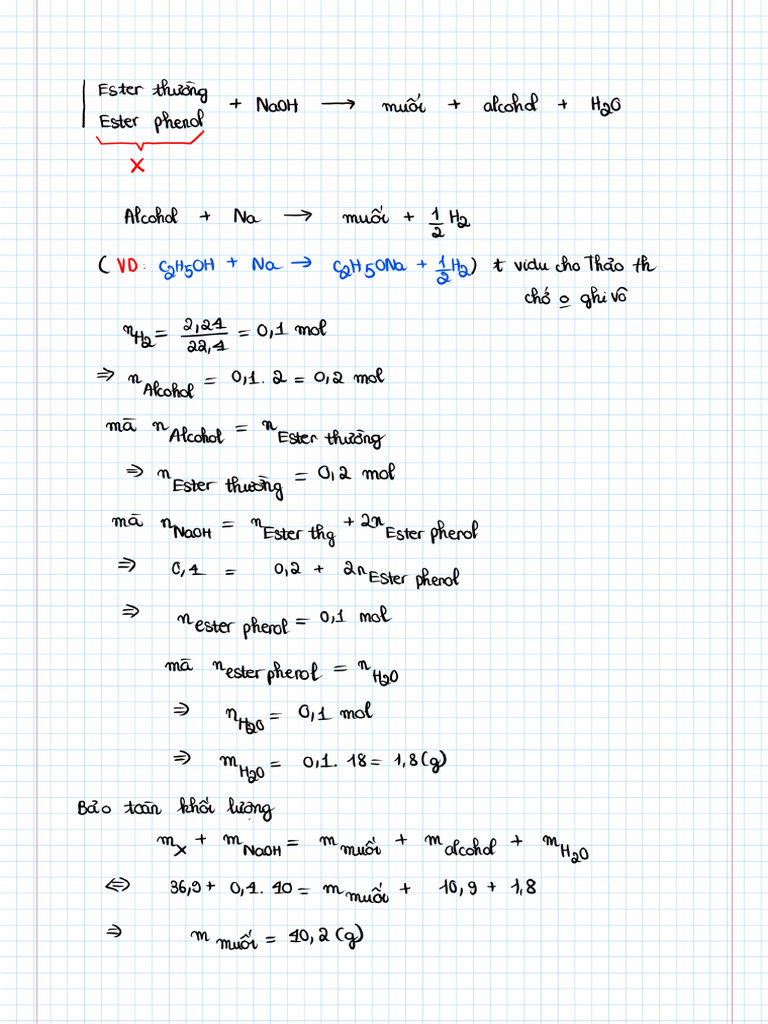 Ester thường
Ester phenol
+ NaOH → muối + alcohol + H₂O
X
Alcohol + Na → muối + 1/2 H₂
(VD: C₂H₅OH + Na → C₂H₅ONa + 1/2 H₂) t vidu cho Thảo th
chớ o ghi vô
n H₂ = 2,24/22,4 = 0,1 mol
⇒ n Alcohol = 0,1. 2 = 0,2 mol
mà n Alcohol = n Ester thường
⇒ n Ester thường = 0,2 mol
mà n NaOH = n Ester thg + 2n Ester phenol
⇒ 0,4 = 0,2 + 2n Ester phenol
⇒ n ester phenol = 0,1 mol
mà n ester phenol = n H₂O
⇒ n H₂O = 0,1 mol
⇒ m H₂O = 0,1. 18 = 1,8 (g)
Bảo toàn khối lượng
m X + m NaOH = m muối + m alcohol + m H₂O
⇔ 36,9 + 0,4. 40 = m muối + 10,9 + 1,8
⇒ m muối = 40,2 (g)